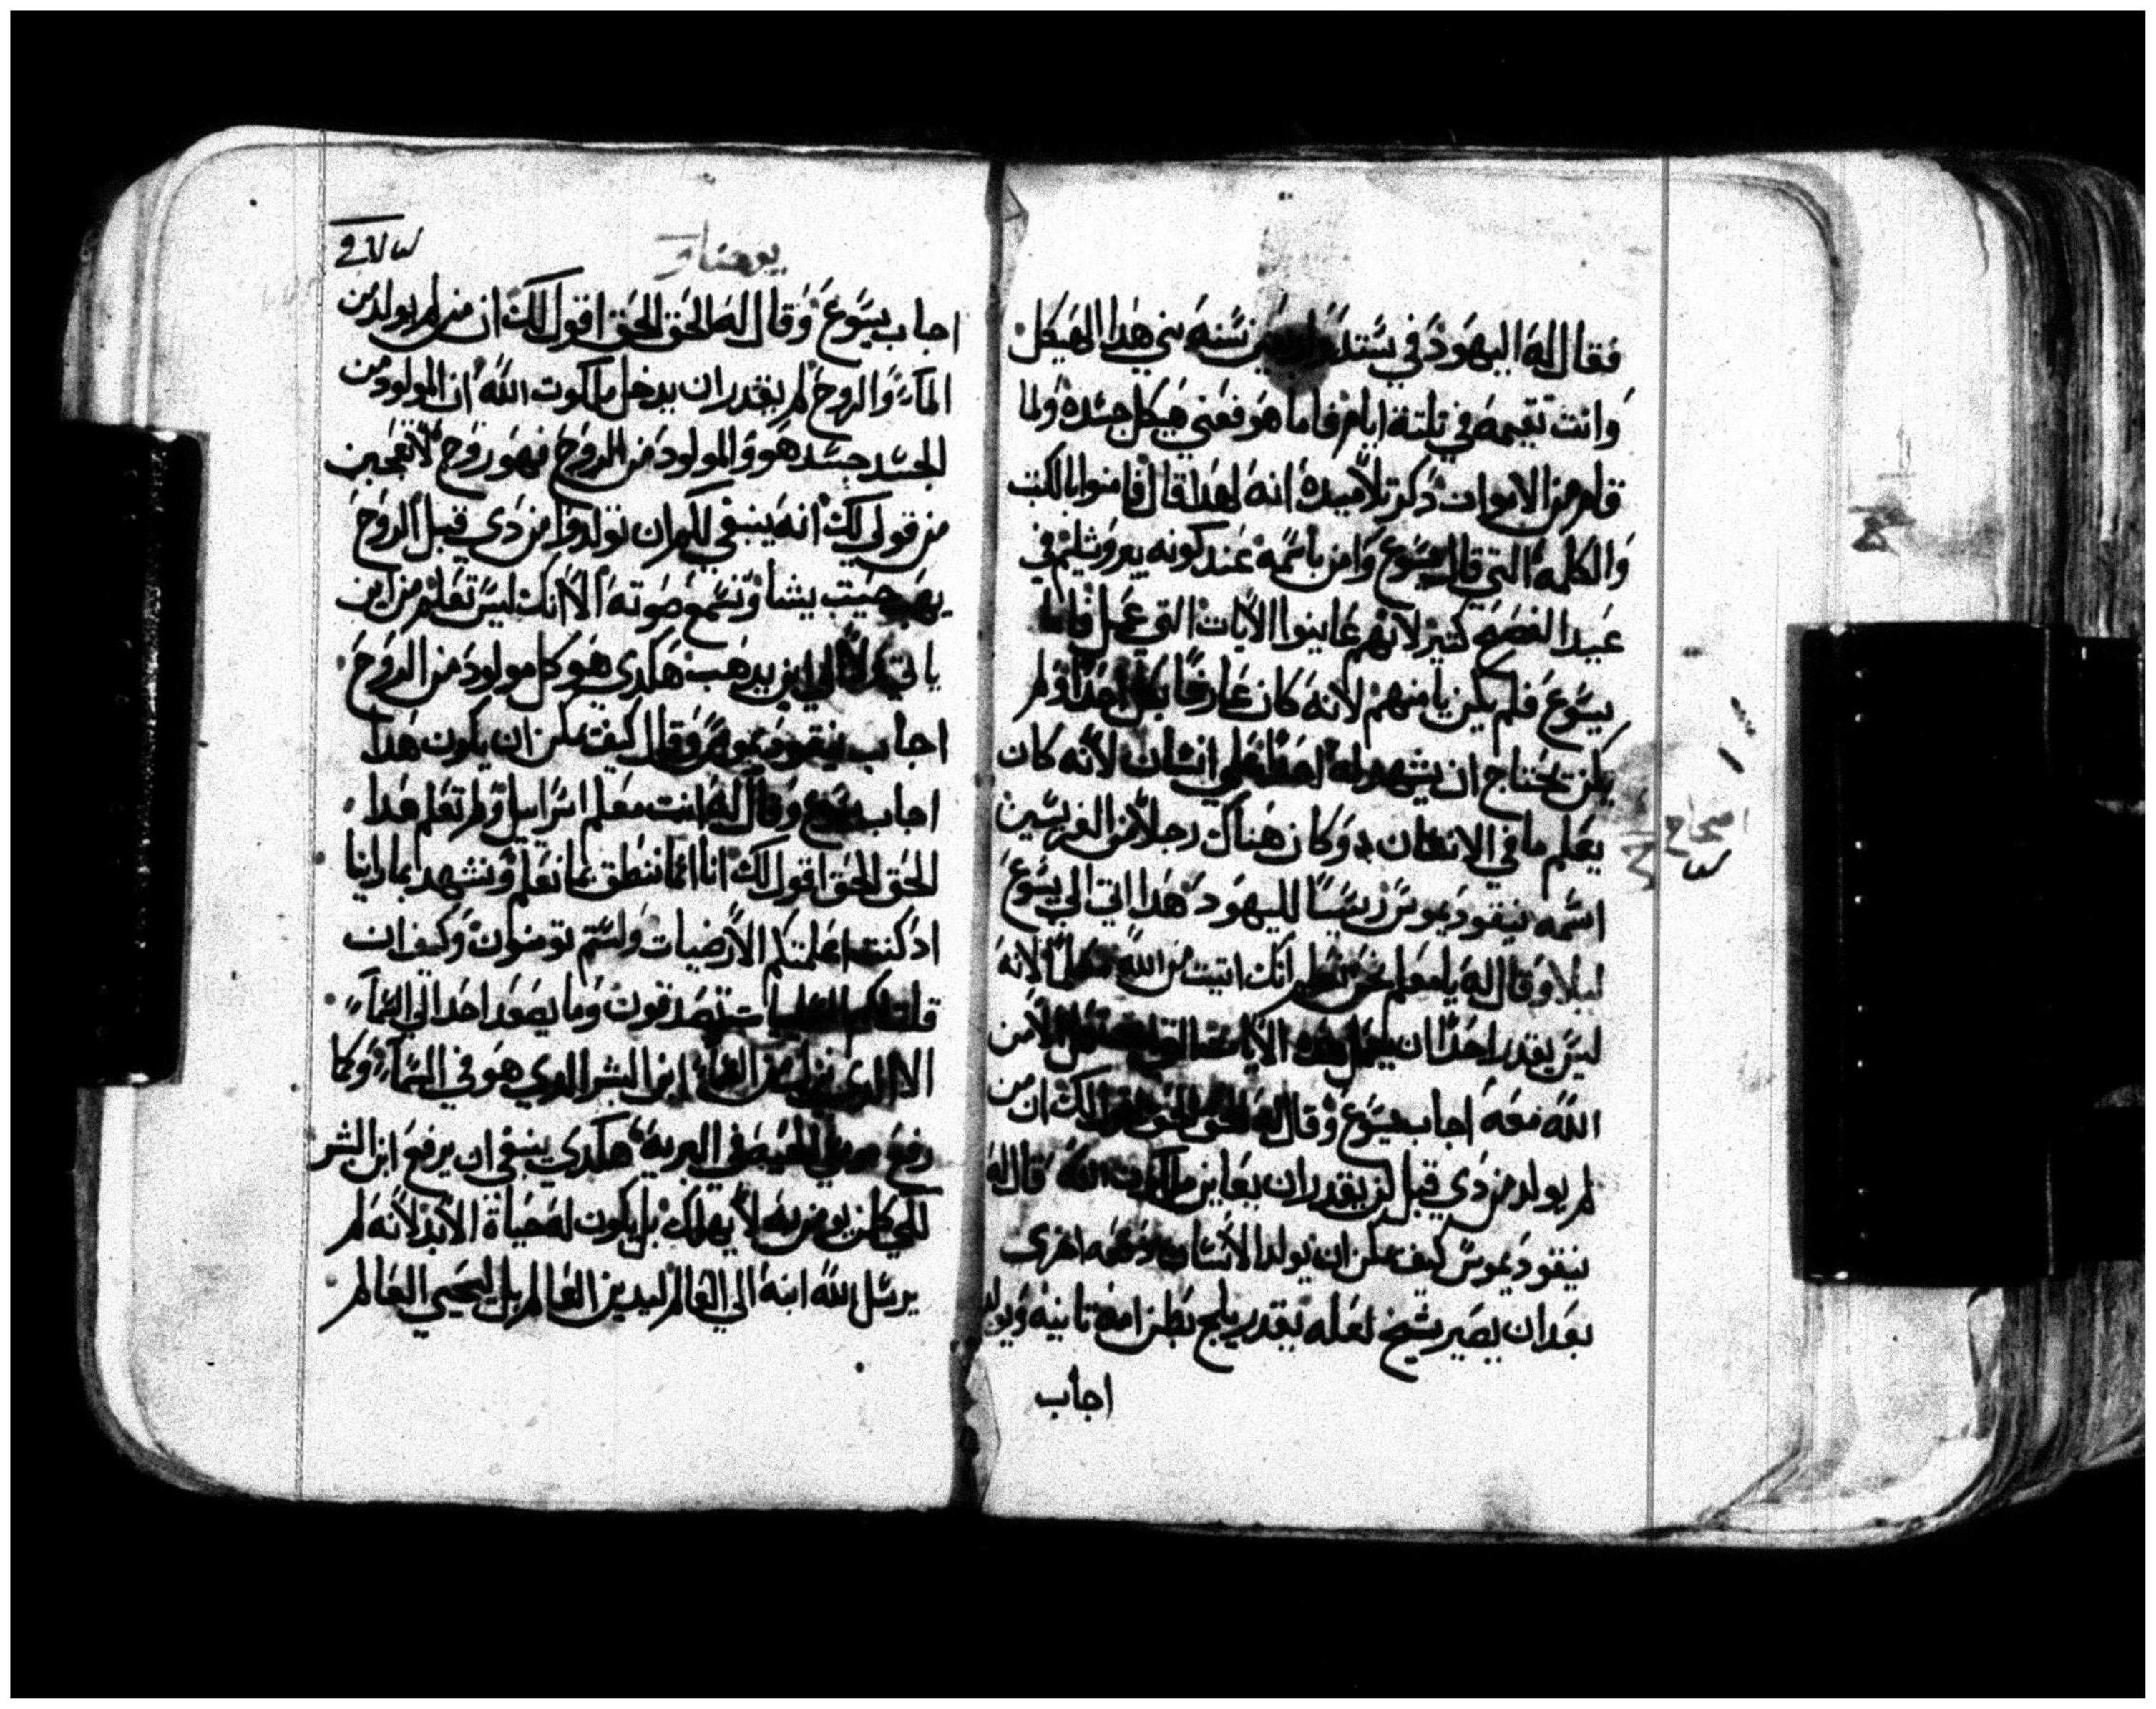 فقال له اليهود في ستة واربعين سنه بني هدا الهيكل
وانت تقيمه في تلتة ايام فاما هو فعني هيكل جسده ولما
قام من الاموات دكر تلاميده انه لهدا قال فامنوا بالكتب
والكلمه التي قال يسوع وامن باسمه عند كونه بيروشليم في
عيد الفصح كتير لانهم عاينوا الايات التي عمل فاما
يسوع فلم يكن يامنهم لانه كان عارفا بكل احد ولم
يكن يحتاج ان يشهد له احد علي انسان لانه كان
يعلم ما في الانسان وكان هناك رجلا من الفريسين
اسمه نيقوديموس ريسا لليهود هدا اتي الي يسوع
ليلا وقال له يا معلم نحن نعلم انك اتيت من الله معلما لانه
ليس يقدر احد ان يعمل هده الايات التي تعمل الا من
الله معه اجاب يسوع وقال له الحق الحق اقول لك ان من
لم يولد من دي قبل لن يقدر ان يعاين ملكوت الله قال له
نيقوديموس كيف يمكن ان يولد الانسان دفعه اخري
بعد ان يصير شيخ لعله يقدر يلج بطن امه تانيه ويولد
اجاب
اصحاح
يوحنا
اجاب يسوع وقال له الحق الحق اقول لك ان من لم يولد من
الماء والروح لم يقدر ان يدخل ملكوت الله ان المولود من
الجسد جسد هو والمولود من الروح فهو روح لا تعجبن
من قولي لك انه ينبغي لكم ان تولدوا من دي قبل الروح
يهب حيت يشا وتسمع صوته الا انك ليس تعلم من اين
ياتي ولا الي اين يدهب هكدي هو كل مولود من الروح
اجاب نيقوديموس وقال كيف يمكن ان يكون هدا
اجاب يسوع وقال له انت معلم اسراييل ولم تعلم هدا
الحق الحق اقول لك اننا انما ننطق بما نعلم ونشهد بما راينا
اد كنت اعلمتكم الارضيات ولستم تومنون وكيف ان
قلت لكم السمايات تصدقون وما يصعد احد الي السماء
الا الدي نزل من السماء ابن البشر الدي هو في السماء وكما
رفع موسي الحيه في البريه هكدي ينبغي ان يرفع ابن البشر
لكي كلمن يومن به لا يهلك بل يكون له حياة الابد لانه لم
يرسل الله ابنه الي العالم ليدين العالم بل ليحيي العالم